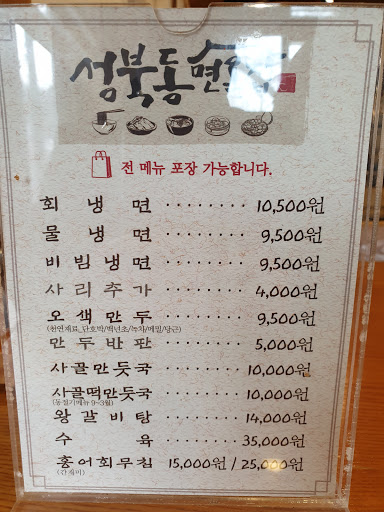 성북동면옥집
전 메뉴 포장 가능합니다.
회 냉 면 ········ 10,500원
물 냉 면 ········ 9,500원
비 빔 냉 면 ········ 9,500원
사 리 추 가 ········ 4,000원
오 색 만 두 ········ 9,500원
(천연재료_단호박/백년초/녹차/메밀/당근)
만 두 반 판 ········ 5,000원
사골만둣국 ······· 10,000원
사골떡만둣국 ······· 10,000원
(동절기메뉴 9~3월)
왕 갈 비 탕 ······· 14,000원
수 육 ······· 35,000원
홍어회무침 15,000원 / 25,000원
(간재미)